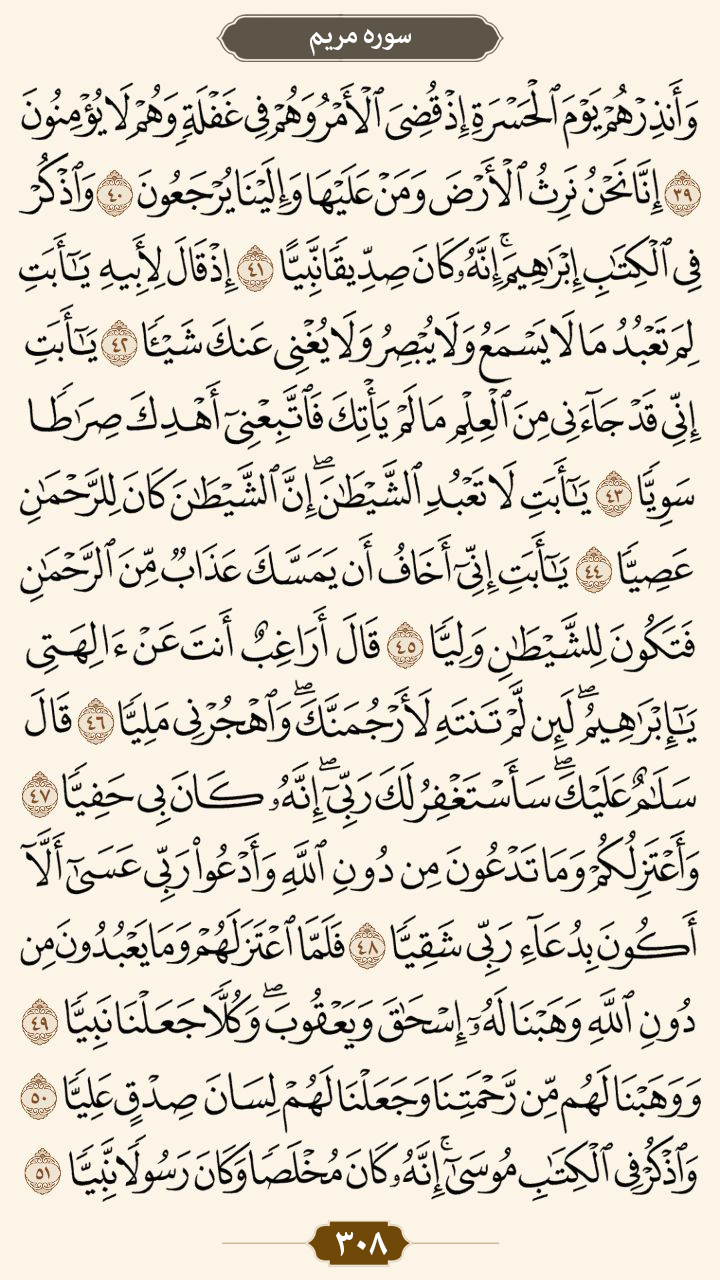 سوره مریم
وَأَنذِرْهُمْ يَوْمَ ٱلْحَسْرَةِ إِذْ قُضِىَ ٱلْأَمْرُ وَهُمْ فِى غَفْلَةٍ وَهُمْ لَا يُؤْمِنُونَ
٣٩ إِنَّا نَحْنُ نَرِثُ ٱلْأَرْضَ وَمَنْ عَلَيْهَا وَإِلَيْنَا يُرْجَعُونَ ٤٠ وَٱذْكُرْ
فِى ٱلْكِتَٰبِ إِبْرَٰهِيمَ ۚ إِنَّهُۥ كَانَ صِدِّيقًا نَّبِيًّا ٤١ إِذْ قَالَ لِأَبِيهِ يَٰٓأَبَتِ
لِمَ تَعْبُدُ مَا لَا يَسْمَعُ وَلَا يُبْصِرُ وَلَا يُغْنِى عَنكَ شَيْـًٔا ٤٢ يَٰٓأَبَتِ
إِنِّى قَدْ جَآءَنِى مِنَ ٱلْعِلْمِ مَا لَمْ يَأْتِكَ فَٱتَّبِعْنِىٓ أَهْدِكَ صِرَٰطًا
سَوِيًّا ٤٣ يَٰٓأَبَتِ لَا تَعْبُدِ ٱلشَّيْطَٰنَ ۖ إِنَّ ٱلشَّيْطَٰنَ كَانَ لِلرَّحْمَٰنِ
عَصِيًّا ٤٤ يَٰٓأَبَتِ إِنِّىٓ أَخَافُ أَن يَمَسَّكَ عَذَابٌ مِّنَ ٱلرَّحْمَٰنِ
فَتَكُونَ لِلشَّيْطَٰنِ وَلِيًّا ٤٥ قَالَ أَرَاغِبٌ أَنتَ عَنْ ءَالِهَتِى
يَٰٓإِبْرَٰهِيمُ ۖ لَئِن لَّمْ تَنتَهِ لَأَرْجُمَنَّكَ ۖ وَٱهْجُرْنِى مَلِيًّا ٤٦ قَالَ
سَلَٰمٌ عَلَيْكَ ۖ سَأَسْتَغْفِرُ لَكَ رَبِّىٓ ۖ إِنَّهُۥ كَانَ بِى حَفِيًّا ٤٧
وَأَعْتَزِلُكُمْ وَمَا تَدْعُونَ مِن دُونِ ٱللَّهِ وَأَدْعُوا۟ رَبِّى عَسَىٰٓ أَلَّآ
أَكُونَ بِدُعَآءِ رَبِّى شَقِيًّا ٤٨ فَلَمَّا ٱعْتَزَلَهُمْ وَمَا يَعْبُدُونَ مِن
دُونِ ٱللَّهِ وَهَبْنَا لَهُۥٓ إِسْحَٰقَ وَيَعْقُوبَ ۖ وَكُلًّا جَعَلْنَا نَبِيًّا ٤٩
وَوَهَبْنَا لَهُم مِّن رَّحْمَتِنَا وَجَعَلْنَا لَهُمْ لِسَانَ صِدْقٍ عَلِيًّا ٥٠
وَٱذْكُرْ فِى ٱلْكِتَٰبِ مُوسَىٰٓ ۚ إِنَّهُۥ كَانَ مُخْلَصًا وَكَانَ رَسُولًا نَّبِيًّا ٥١
٣٠٨